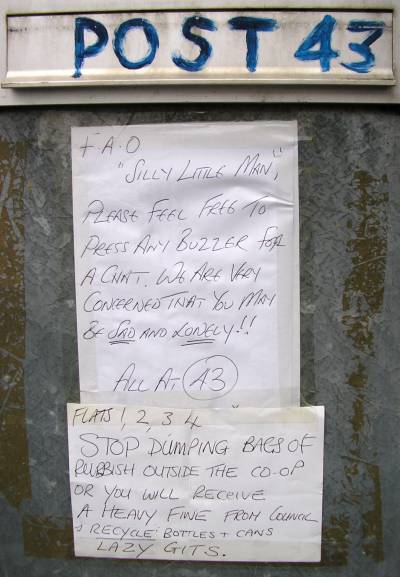 POST 43
F.A.O
"SILLY LITTLE MAN",
PLEASE FEEL FREE TO
PRESS ANY BUZZER FOR
A CHAT. WE ARE VERY
CONCERNED THAT YOU MAY
BE SAD AND LONELY!!
ALL AT 43
FLATS 1, 2, 3 4
STOP DUMPING BAGS OF
RUBBISH OUTSIDE THE CO-OP
OR YOU WILL RECEIVE
A HEAVY FINE FROM COUNCIL
& RECYCLE BOTTLES + CANS
LAZY GITS.